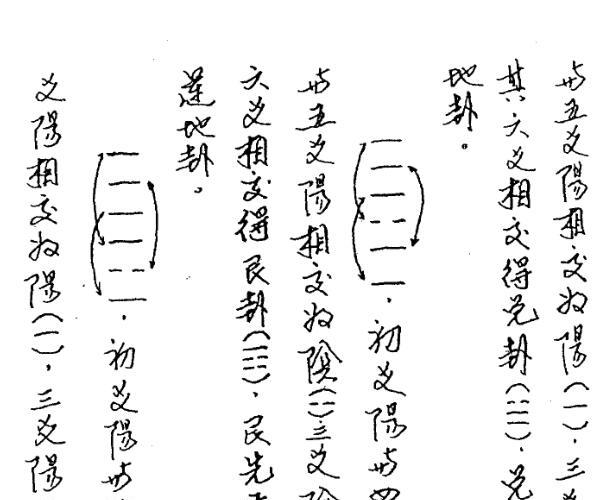 與五爻陽相交為陽(—),三爻
與六爻相交得兌卦(☱),兌
地卦。
,初爻陽與四
與五爻陽相交為陰(--)三爻陰
六爻相交得艮卦(☶),艮先天
蓮地卦。
,初爻陽與
爻陽相交為陽(—),三爻陽